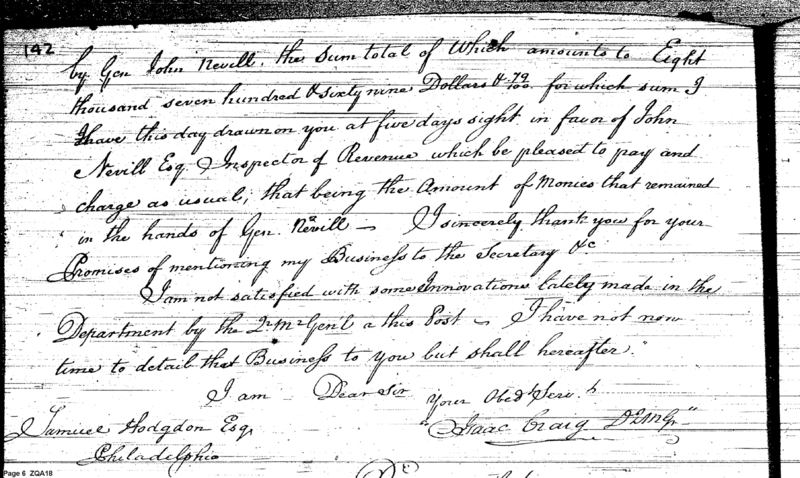 142
by Gen John Nevill. the Sum total of Which amounts to Eight
thousand seven hundred & sixty nine Dollars & 79/100 for which sum I
have this day drawn on you at five days sight in favor of John
Nevill Esq. Inspector of Revenue which be pleased to pay and
charge as usual; that being the Amount of Monies that remained
in the hands of Gen. Nevill — I sincerely thank you for your
Promises of mentioning my Business to the Secretary &c
I am not satisfied with some Innovations lately made in the
Department by the Qr Mr Gen'l a this Post — I have not now
time to detail that Business to you but shall hereafter."
I am Dear Sir your Obedt Servt
Samuel Hodgdon Esq. "Isaac Craig DQMGr"
Philadelphia
Page 6 ZQA18